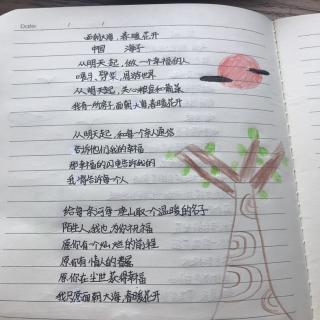 Date: / /
面朝大海，春暖花开
中国 海子
从明天起，做一个幸福的人
喂马、劈柴，周游世界
从明天起，关心粮食和蔬菜
我有一所房子，面朝大海，春暖花开
从明天起，和每个亲人通信
告诉他们我的幸福
那幸福的闪电告诉我的
我将告诉每个人
给每条河每座山取一个温暖的名字
陌生人，我也为你祝福
愿你有个灿烂的前程
愿你有情人终成眷属
愿你在尘世获得幸福
我只愿面朝大海，春暖花开